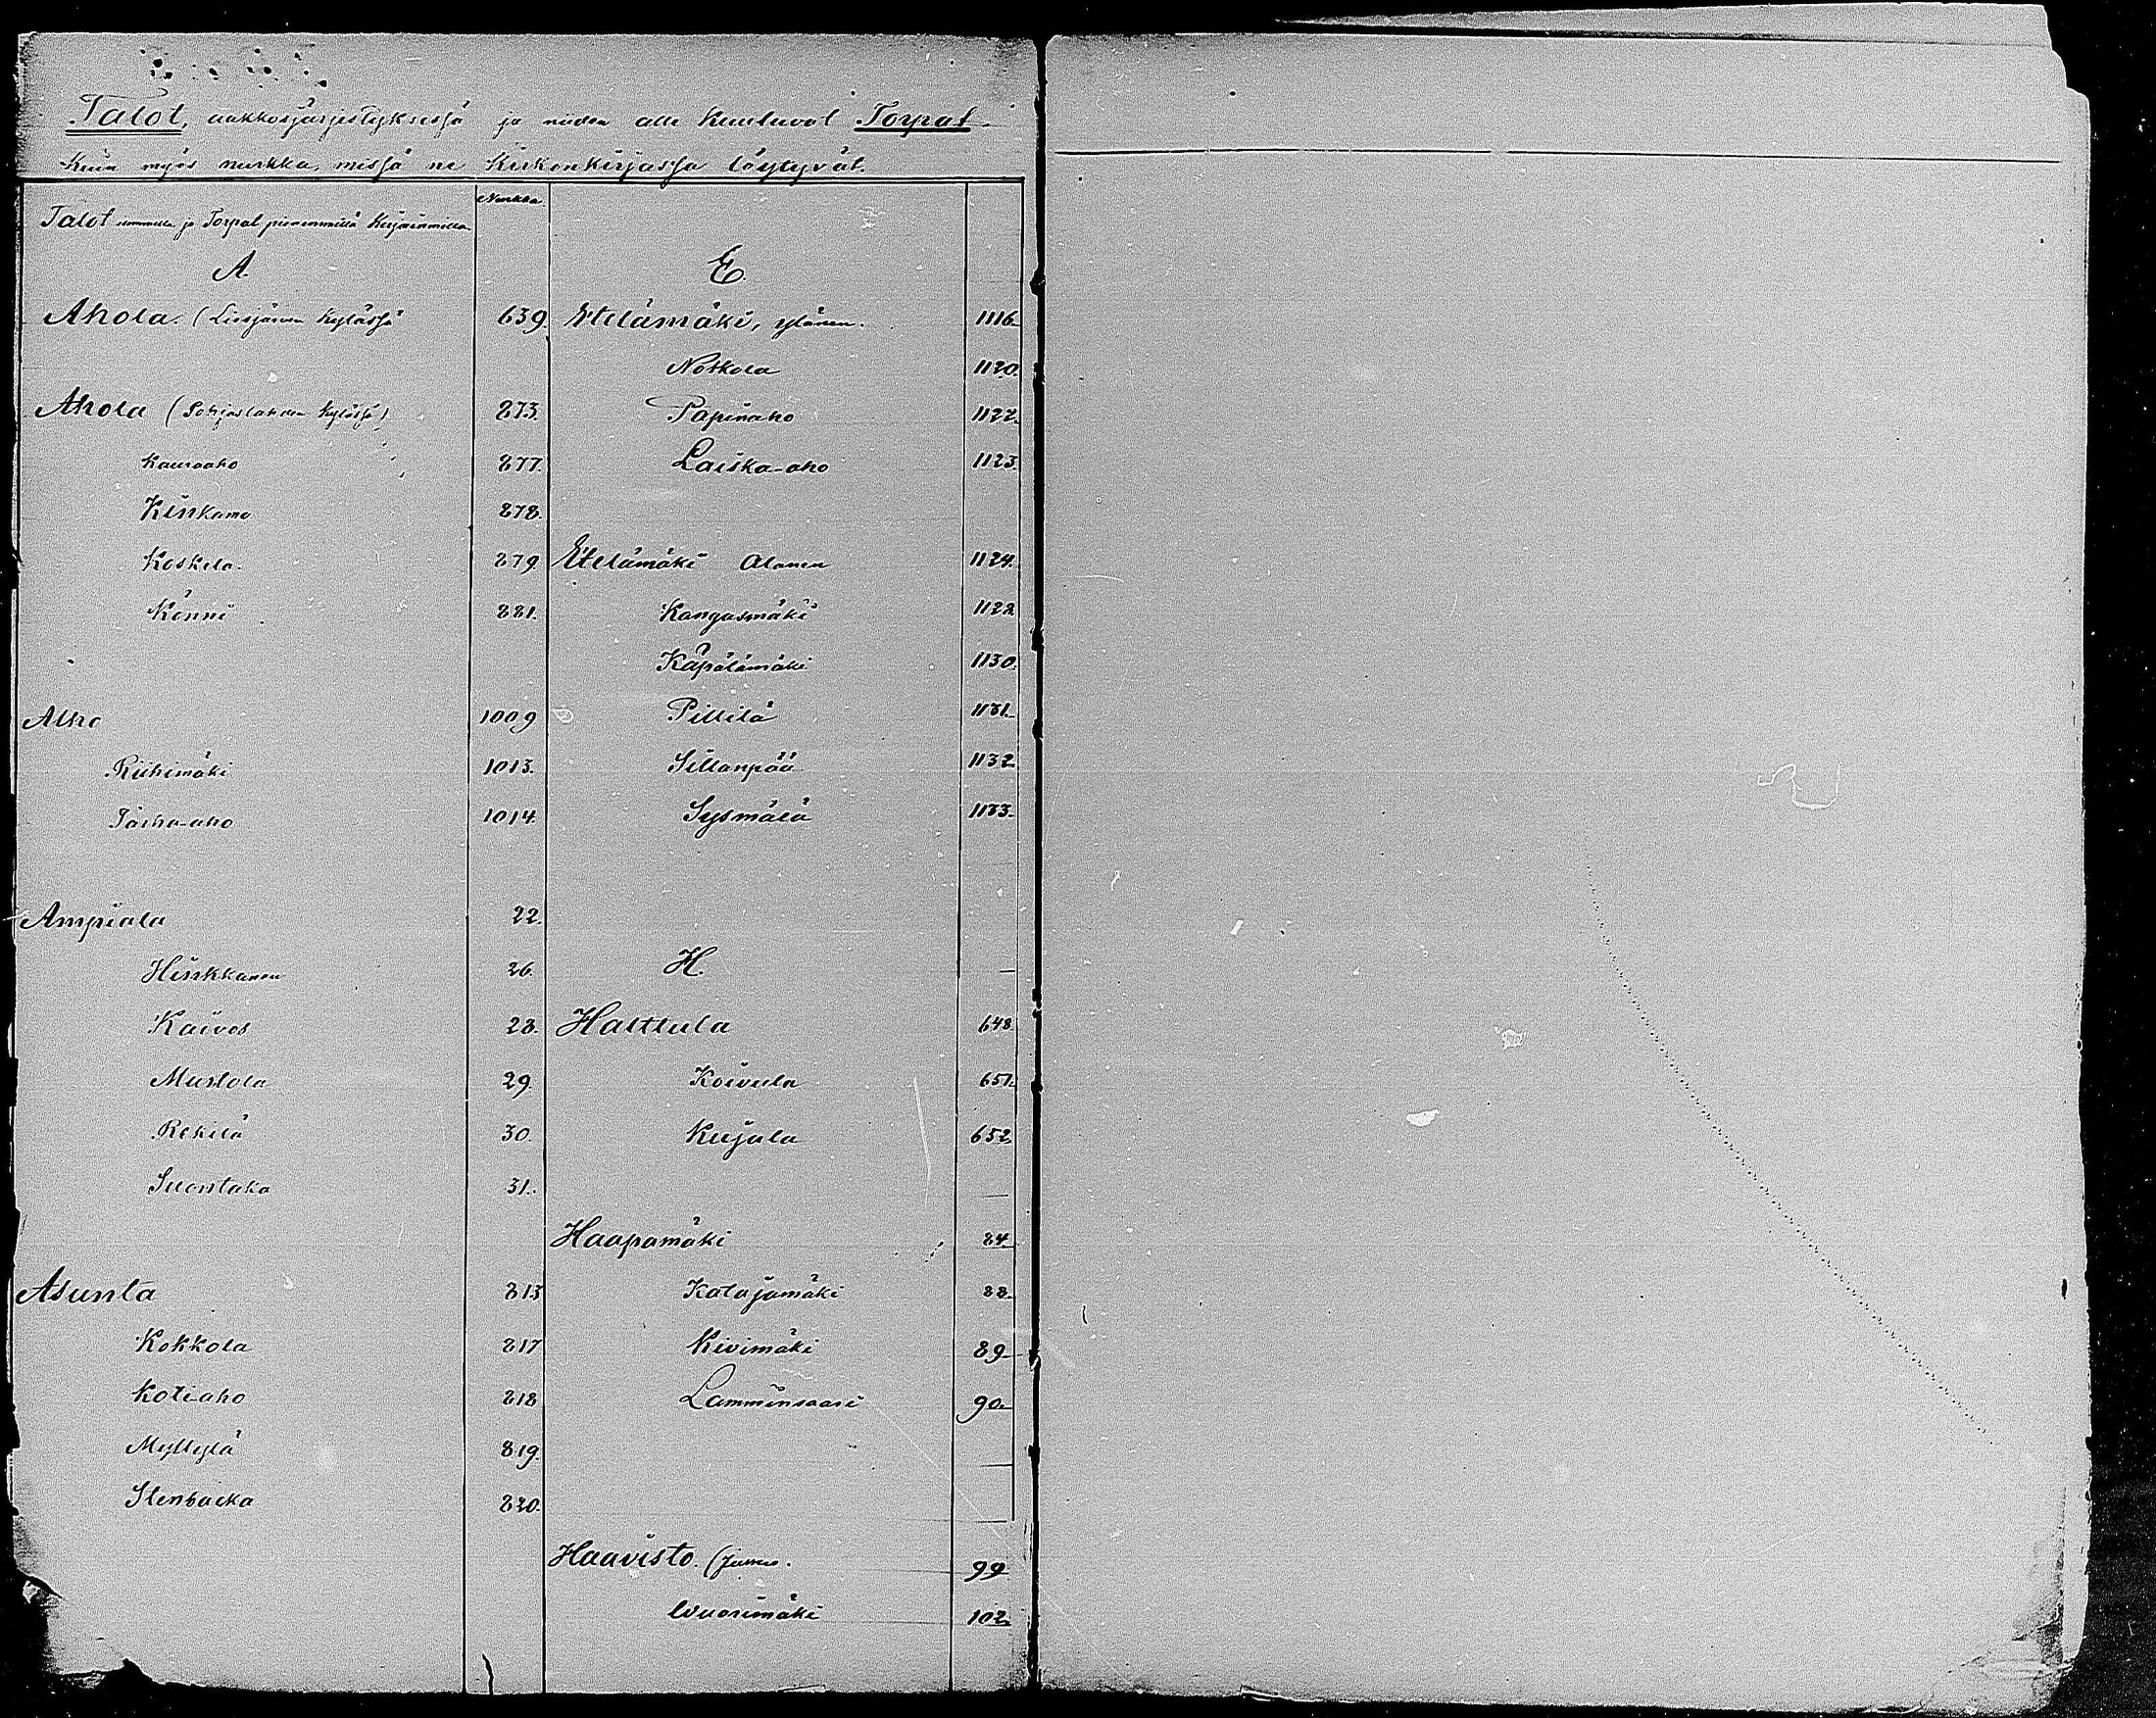 Talot, aakkosjärjestyksessä ja niiden alle kuuluvat Torpat.
Kuin myös nurkka, missä ne Kirkonkirjassa löytyvät.
Talot ja Torpat pienemmillä kirjaimilla
Nurkka
A.
Ahola. (Liesjärven kylässä 639.
Ahola (Pohjaslahden kylässä) 873.
Kauraaho 877.
Kinkamo 878.
Koskela. 879.
Könni 881.
Alho 1009
Riihimäki 1013.
Paiho-aho 1014.
Ampiala 22.
Hinkkanen 26.
Kaivos 28.
Mustola 29.
Rekilä 30.
Suontaka 31.
Asunta 813
Kokkola 817
Kotiaho 818
Myllylä 819.
Stenbacka 820.
E.
Etelämäki, ylänen. 1116.
Notkola 1120.
Papinaho 1122.
Laiska-aho 1123.
Etelämäki Alanen 1124.
Kangasmäki 1122
Käpälämäki 1130.
Pillilä 1131.
Sillanpää 1132.
Sysmälä 1133.
H.
Halttula 648.
Koivula 651.
Kujala 652.
Haapamäki 84.
Katajamäki 88.
Kivimäki 89
Lamminsaari 90.
Haavisto. 99
Wuorimäki 102.